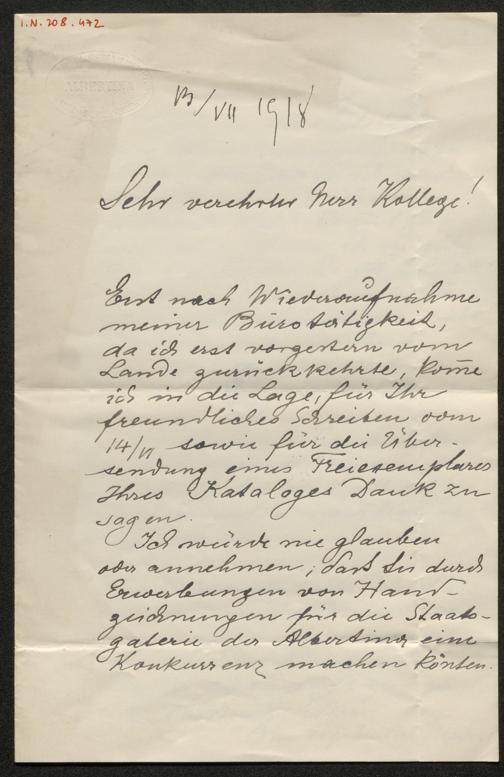 I.N. 208.472
ALBERTINA
13/VII 1918
Sehr verehrter Herr Kollege!
Erst nach Wiederaufnahme
meiner Bürotätigkeit,
da ich erst vorgestern vom
Lande zurückkehrte, kom̅e
ich in die Lage, für Ihr
freundliches Schreiben vom
14/VI sowie für die Über-
sendung eines Freiexemplares
Ihres Kataloges Dank zu
sagen.
Ich würde nie glauben
oder annehmen, dass Sie durch
Erwerbungen von Hand-
zeichnungen für die Staats-
galerie der Albertina eine
Konkurrenz machen könten.